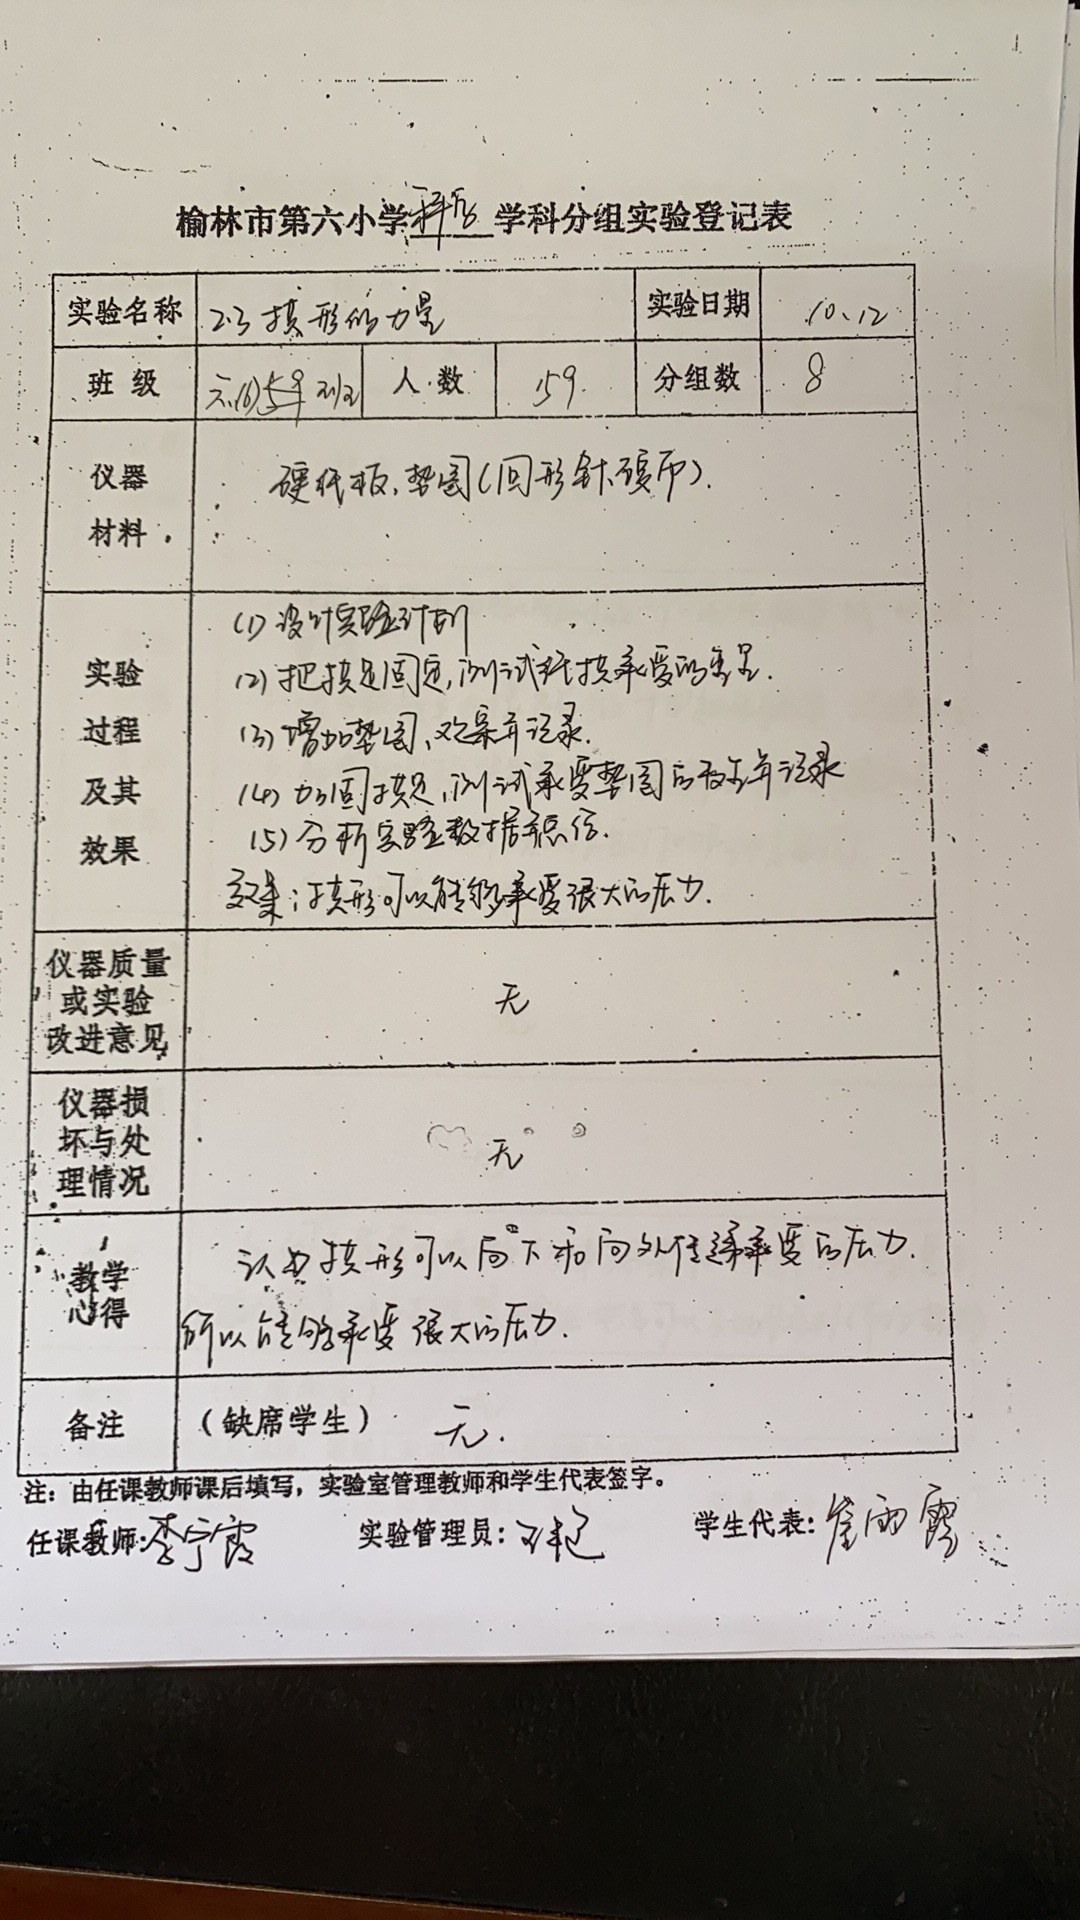 榆林市第六小学科学学科分组实验登记表
实验名称 2.3 拱形的力量 实验日期 10、12
班级 六 班 人数 59 分组数 8
仪器
材料
硬纸板、垫圈(回形针、硬币).
实验
过程
及其
效果
(1) 设计实验计划
(2) 把拱足固定,测试纸拱承受的重量.
(3) 增加垫圈,观察并记录.
(4) 加固拱足,测试承受垫圈 并记录
(5) 分析实验数据
效果:拱形可以能够承受很大的压力.
仪器质量
或实验
改进意见
无
仪器损
坏与处
理情况
无
教学
心得
认为拱形可以向下和向外传递承受的压力.
所以能够承受很大的压力.
备注 (缺席学生) 无.
注:由任课教师课后填写,实验室管理教师和学生代表签字。
任课教师:李宁霞 实验管理员: 学生代表:崔雨露